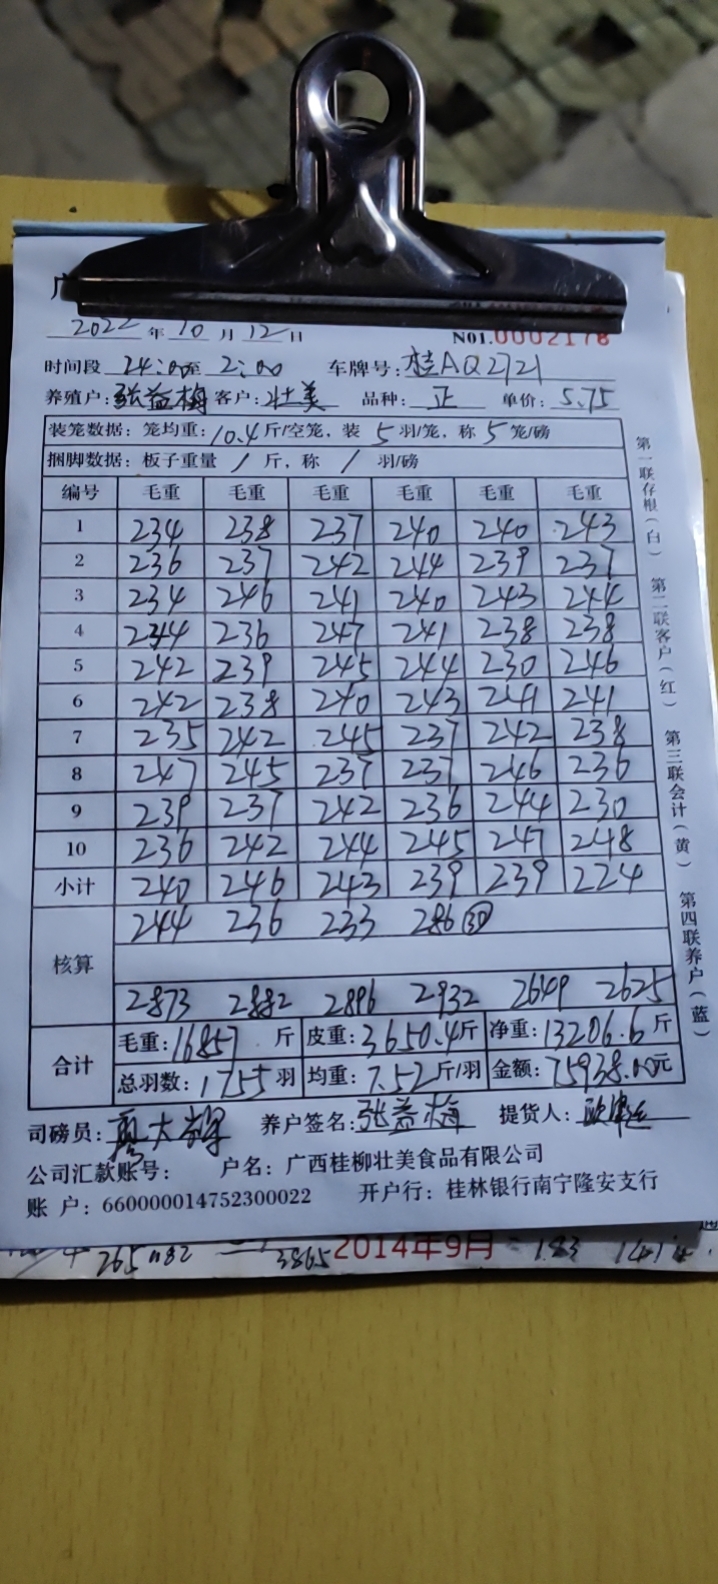 广
2022 年 10 月 12 日 N01.0002178
时间段 24:00至 2:00 车牌号: 桂AQ2721
养殖户: 张益梅 客户: 壮美 品种: 正 单价: 5.75
装笼数据: 笼均重: 10.4 斤/空笼, 装 5 羽/笼, 称 5 笼/磅
捆脚数据: 板子重量 / 斤, 称 / 羽/磅
编号 毛重 毛重 毛重 毛重 毛重 毛重
1 234 238 237 240 240 243
2 236 237 242 244 239 237
3 234 246 241 240 243 244
4 244 236 247 241 238 238
5 242 239 245 244 230 246
6 242 238 240 243 241 241
7 235 242 245 237 242 238
8 247 245 237 237 246 236
9 239 237 242 236 244 230
10 236 242 244 245 247 248
小计 240 246 243 239 239 224
核算 244 236 233 286 30
2873 2882 2896 2932 2649 2625
合计 毛重: 16857 斤 皮重: 3650.4斤 净重: 13206.6 斤
总羽数: 1755 羽 均重: 7.52斤/羽 金额: 75938.00元
司磅员: 廖大 养户签名: 张益梅 提货人:
公司汇款账号: 户名: 广西桂柳壮美食品有限公司
账 户: 660000014752300022 开户行: 桂林银行南宁隆安支行
第一联存根(白) 第二联客户(红) 第三联会计(黄) 第四联养户(蓝)
3865 2014年9月 183